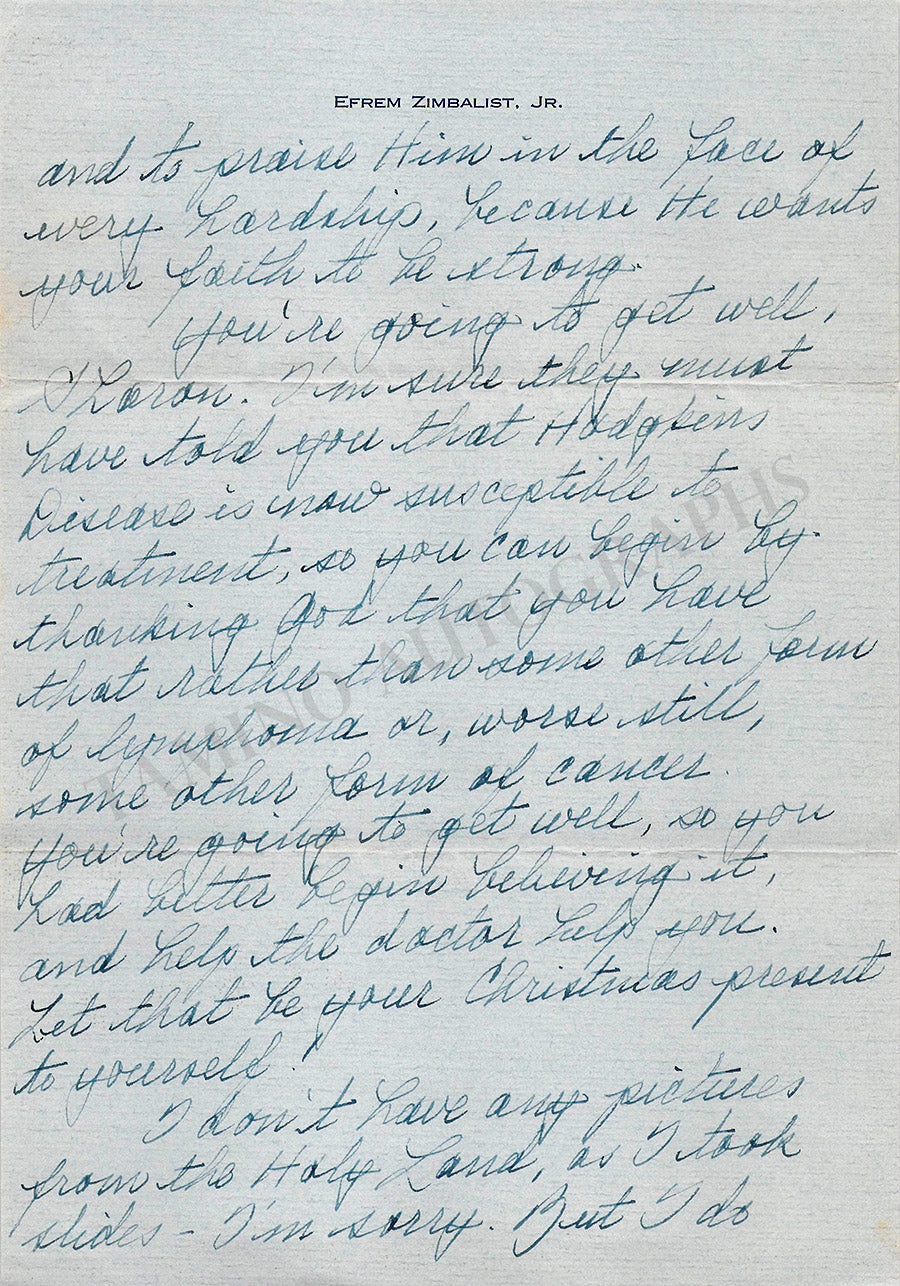 EFREM ZIMBALIST, JR.
and to praise Him in the face of
every hardship, because He wants
your faith to be strong.
You're going to get well,
Loron. I'm sure they must
have told you that Hodgkins
Disease is now susceptible to
treatment, so you can begin by
thanking God that you have
that rather than some other form
of lymphoma or, worse still,
some other form of cancer.
You're going to get well, so you
had better begin believing it,
and help the doctor help you.
Let that be your Christmas present
to yourself.
I don't have any pictures
from the Holy Land, as I took
slides – I'm sorry. But I do
TAMINO AUTOGRAPHS